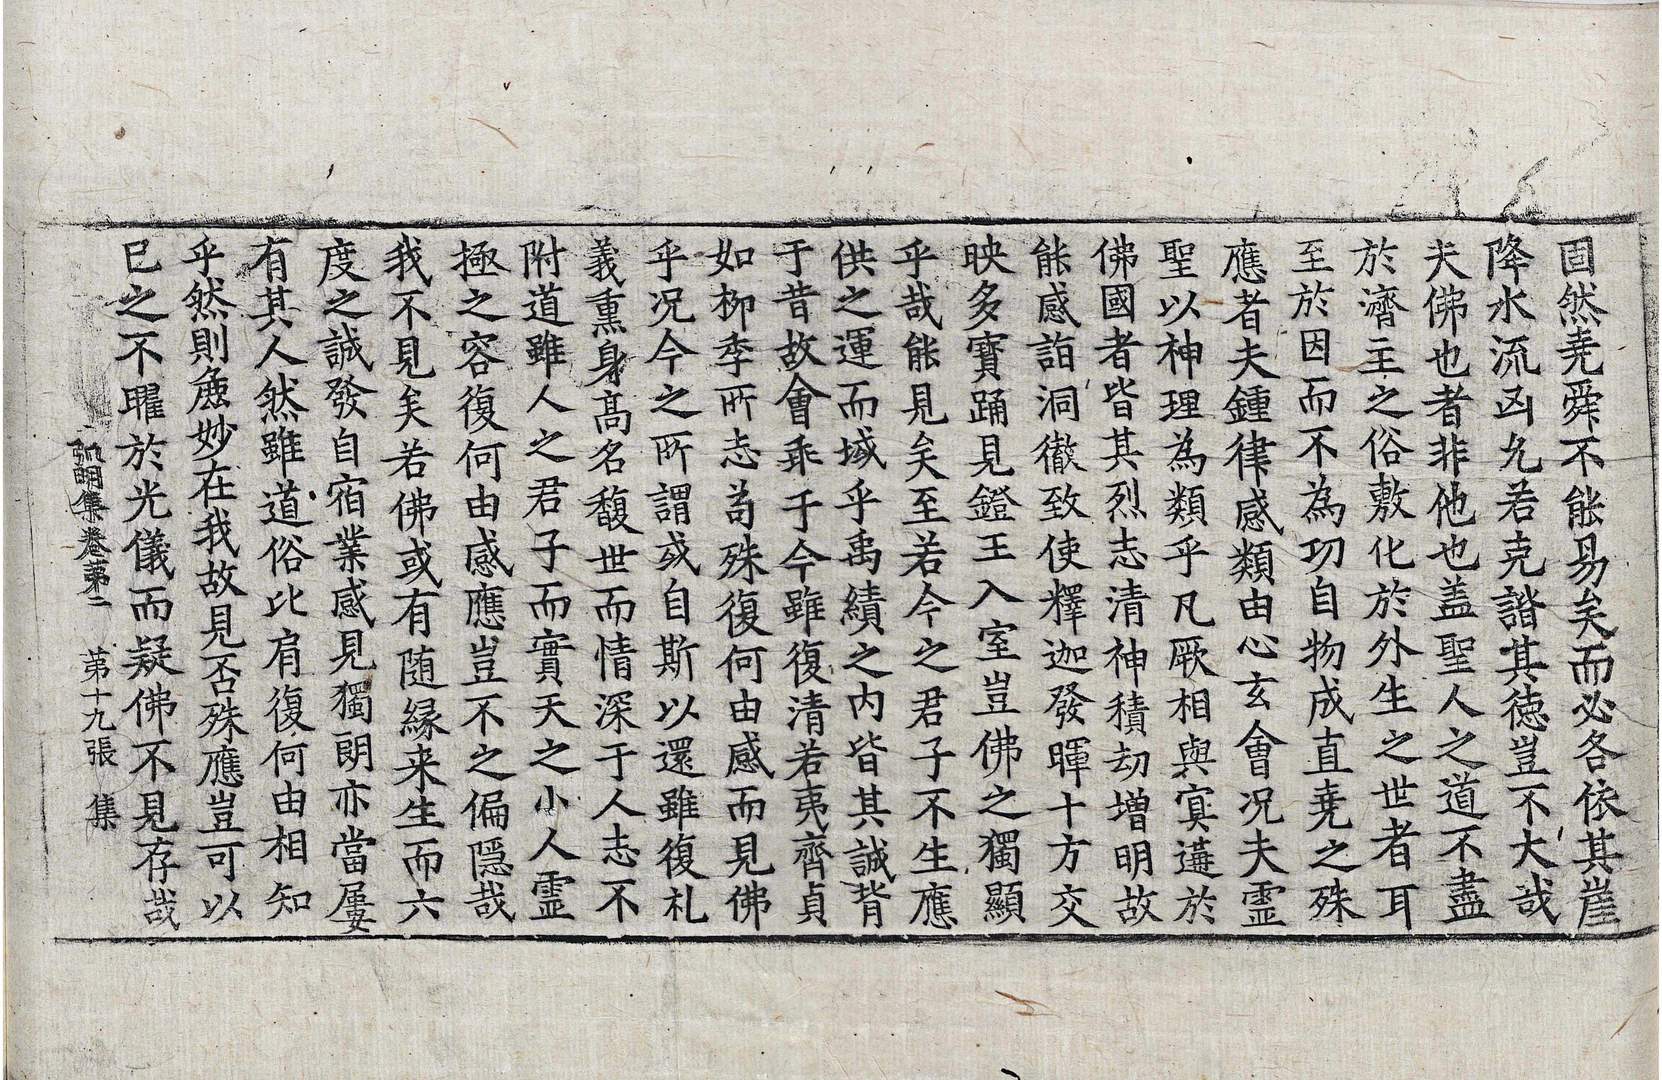 固然堯舜不能易矣而必各依其崖
降水流凶允若克諧其德豈不大哉
夫佛也者非他也盖聖人之道不盡
於濟主之俗敷化於外生之世者耳
至於因而不為功自物成直堯之殊
應者夫鍾律感類由心玄會况夫靈
聖以神理為類乎凡厥相與㝠遘於
佛國者皆其烈志清神積劫增明故
能感詣洞徹致使釋迦發暉十方交
映多寶踊見鐙王入室豈佛之獨顯
乎哉能見矣至若今之君子不生應
供之運而域乎禹績之内皆其誠背
于昔故會乖于今雖復清若夷齊貞
如栁季所志苟殊復何由感而見佛
乎况今之所謂或自斯以還雖復札
義熏身髙名馥世而情深于人志不
附道雖人之君子而實天之小人靈
極之容復何由感應豈不之偏隱哉
我不見矣若佛或有随縁来生而六
度之誠發自宿業感見獨朗亦當屢
有其人然雖道俗比肩復何由相知
乎然則麁妙在我故見否殊應豈可以
巳之不曜於光儀而疑佛不見存哉
弘明集卷苐二 苐十九張 集